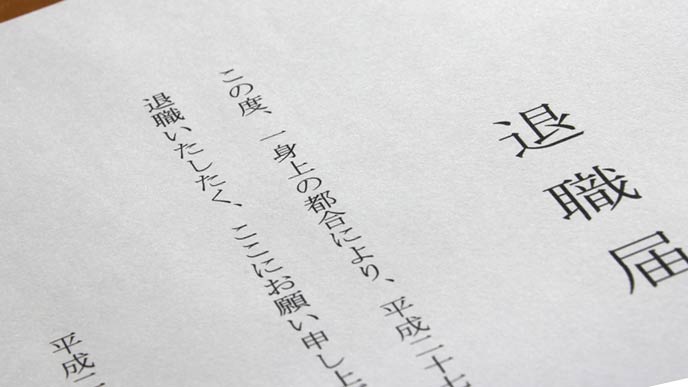 退職届
この度、一身上の都合により、平成二十七
退職いたしたく、ここにお願い申し上
平成二